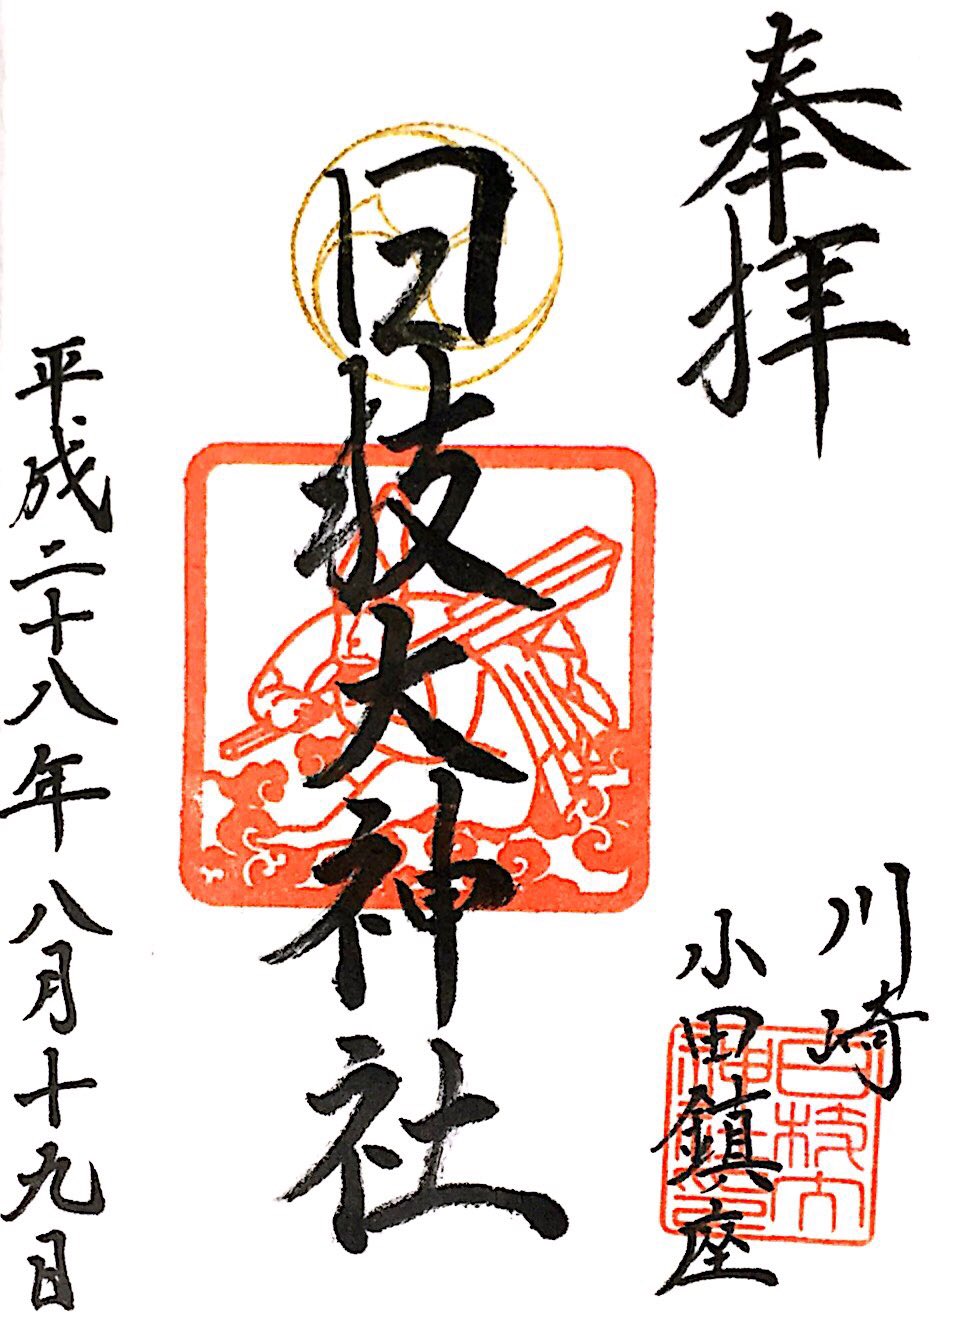 奉拝
川崎
小田鎮座
日枝大神社
平成二十八年八月十九日